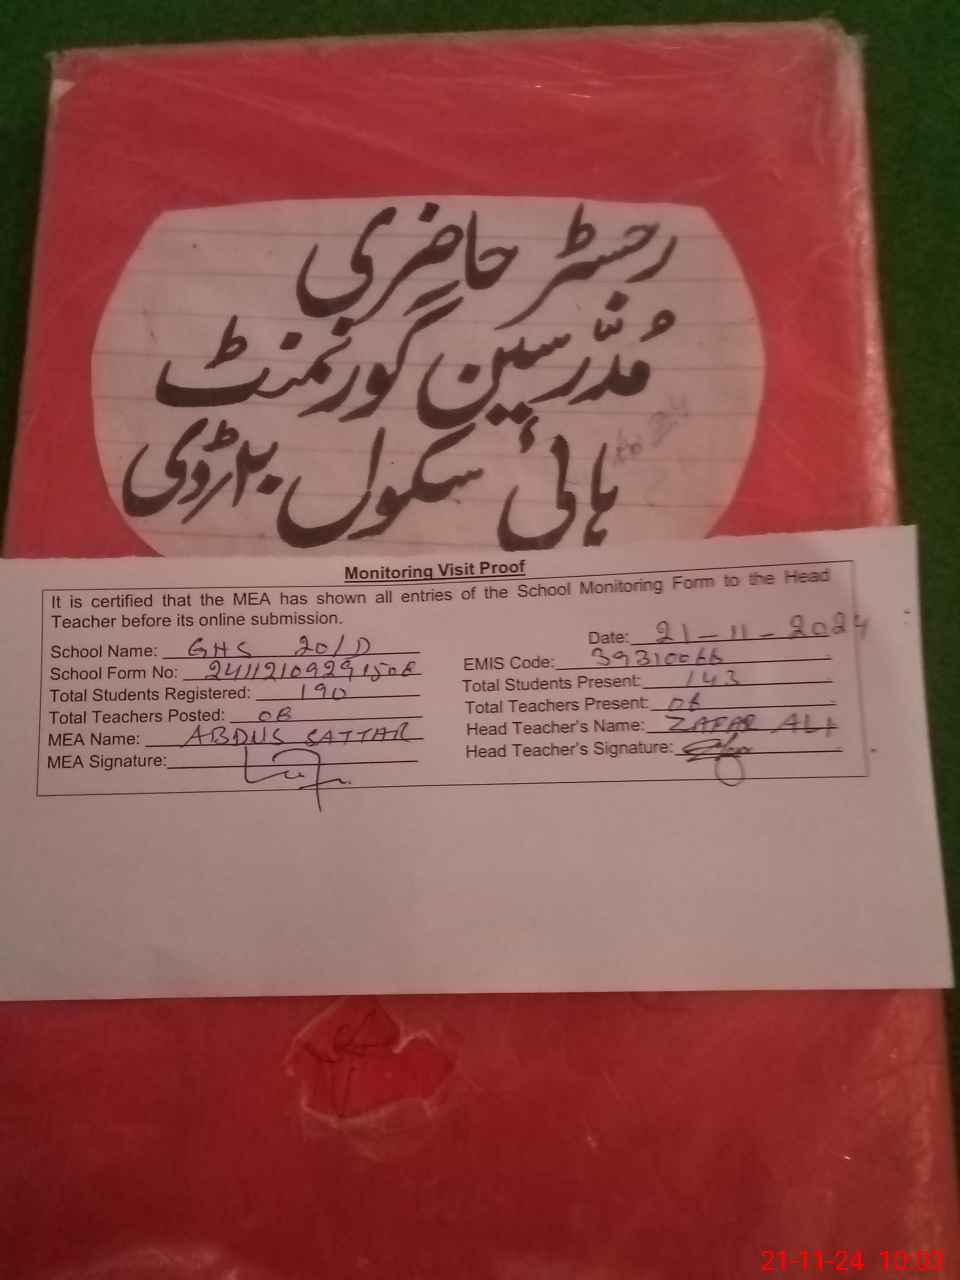 رجسٹر حاضری
مُدّرسین گورنمنٹ
ہائی سکول ۲۰ڑڈی
Monitoring Visit Proof
It is certified that the MEA has shown all entries of the School Monitoring Form to the Head
Teacher before its online submission.
Date: 21-11-2024
School Name: GHS 20/D
EMIS Code: 39310066
School Form No:
Total Students Present: 143
Total Students Registered: 190
Total Teachers Present: 06
Total Teachers Posted: 08
Head Teacher's Name: ZAFAR ALI
MEA Name: ABDUS SATTAR
Head Teacher's Signature:
MEA Signature:
21-11-24 10:03